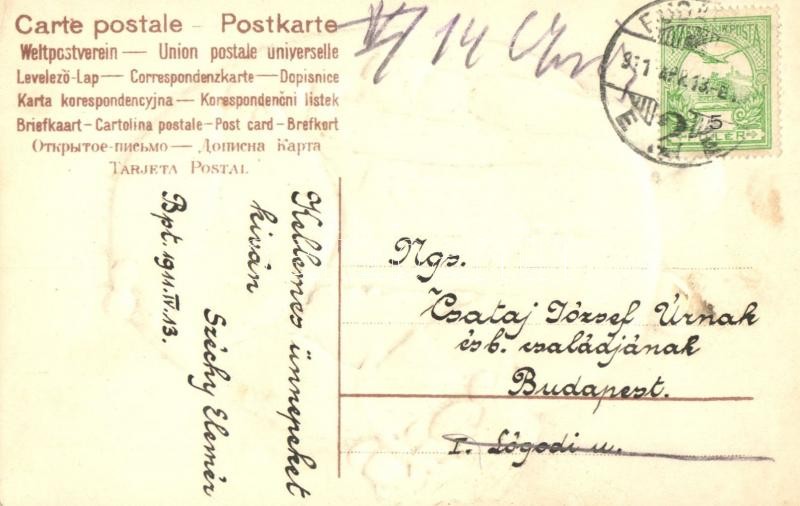 Carte postale - Postkarte
Weltpostverein — Union postale universelle
Levelező-Lap — Correspondenzkarte — Dopisnice
Karta korespondencyjna — Korespondenční listek
Briefkaart - Cartolina postale - Post card - Brefkort
Открытое-письмо — Дописна Карта
TARJETA POSTAL
V/14
5
Kellemes ünnepeket
kiván
Széchy Elemér
Bpt. 1911. IV. 13.
Ngs.
Csataj József Úrnak
ésb. családjának
Budapest.
I. Lógodi u.